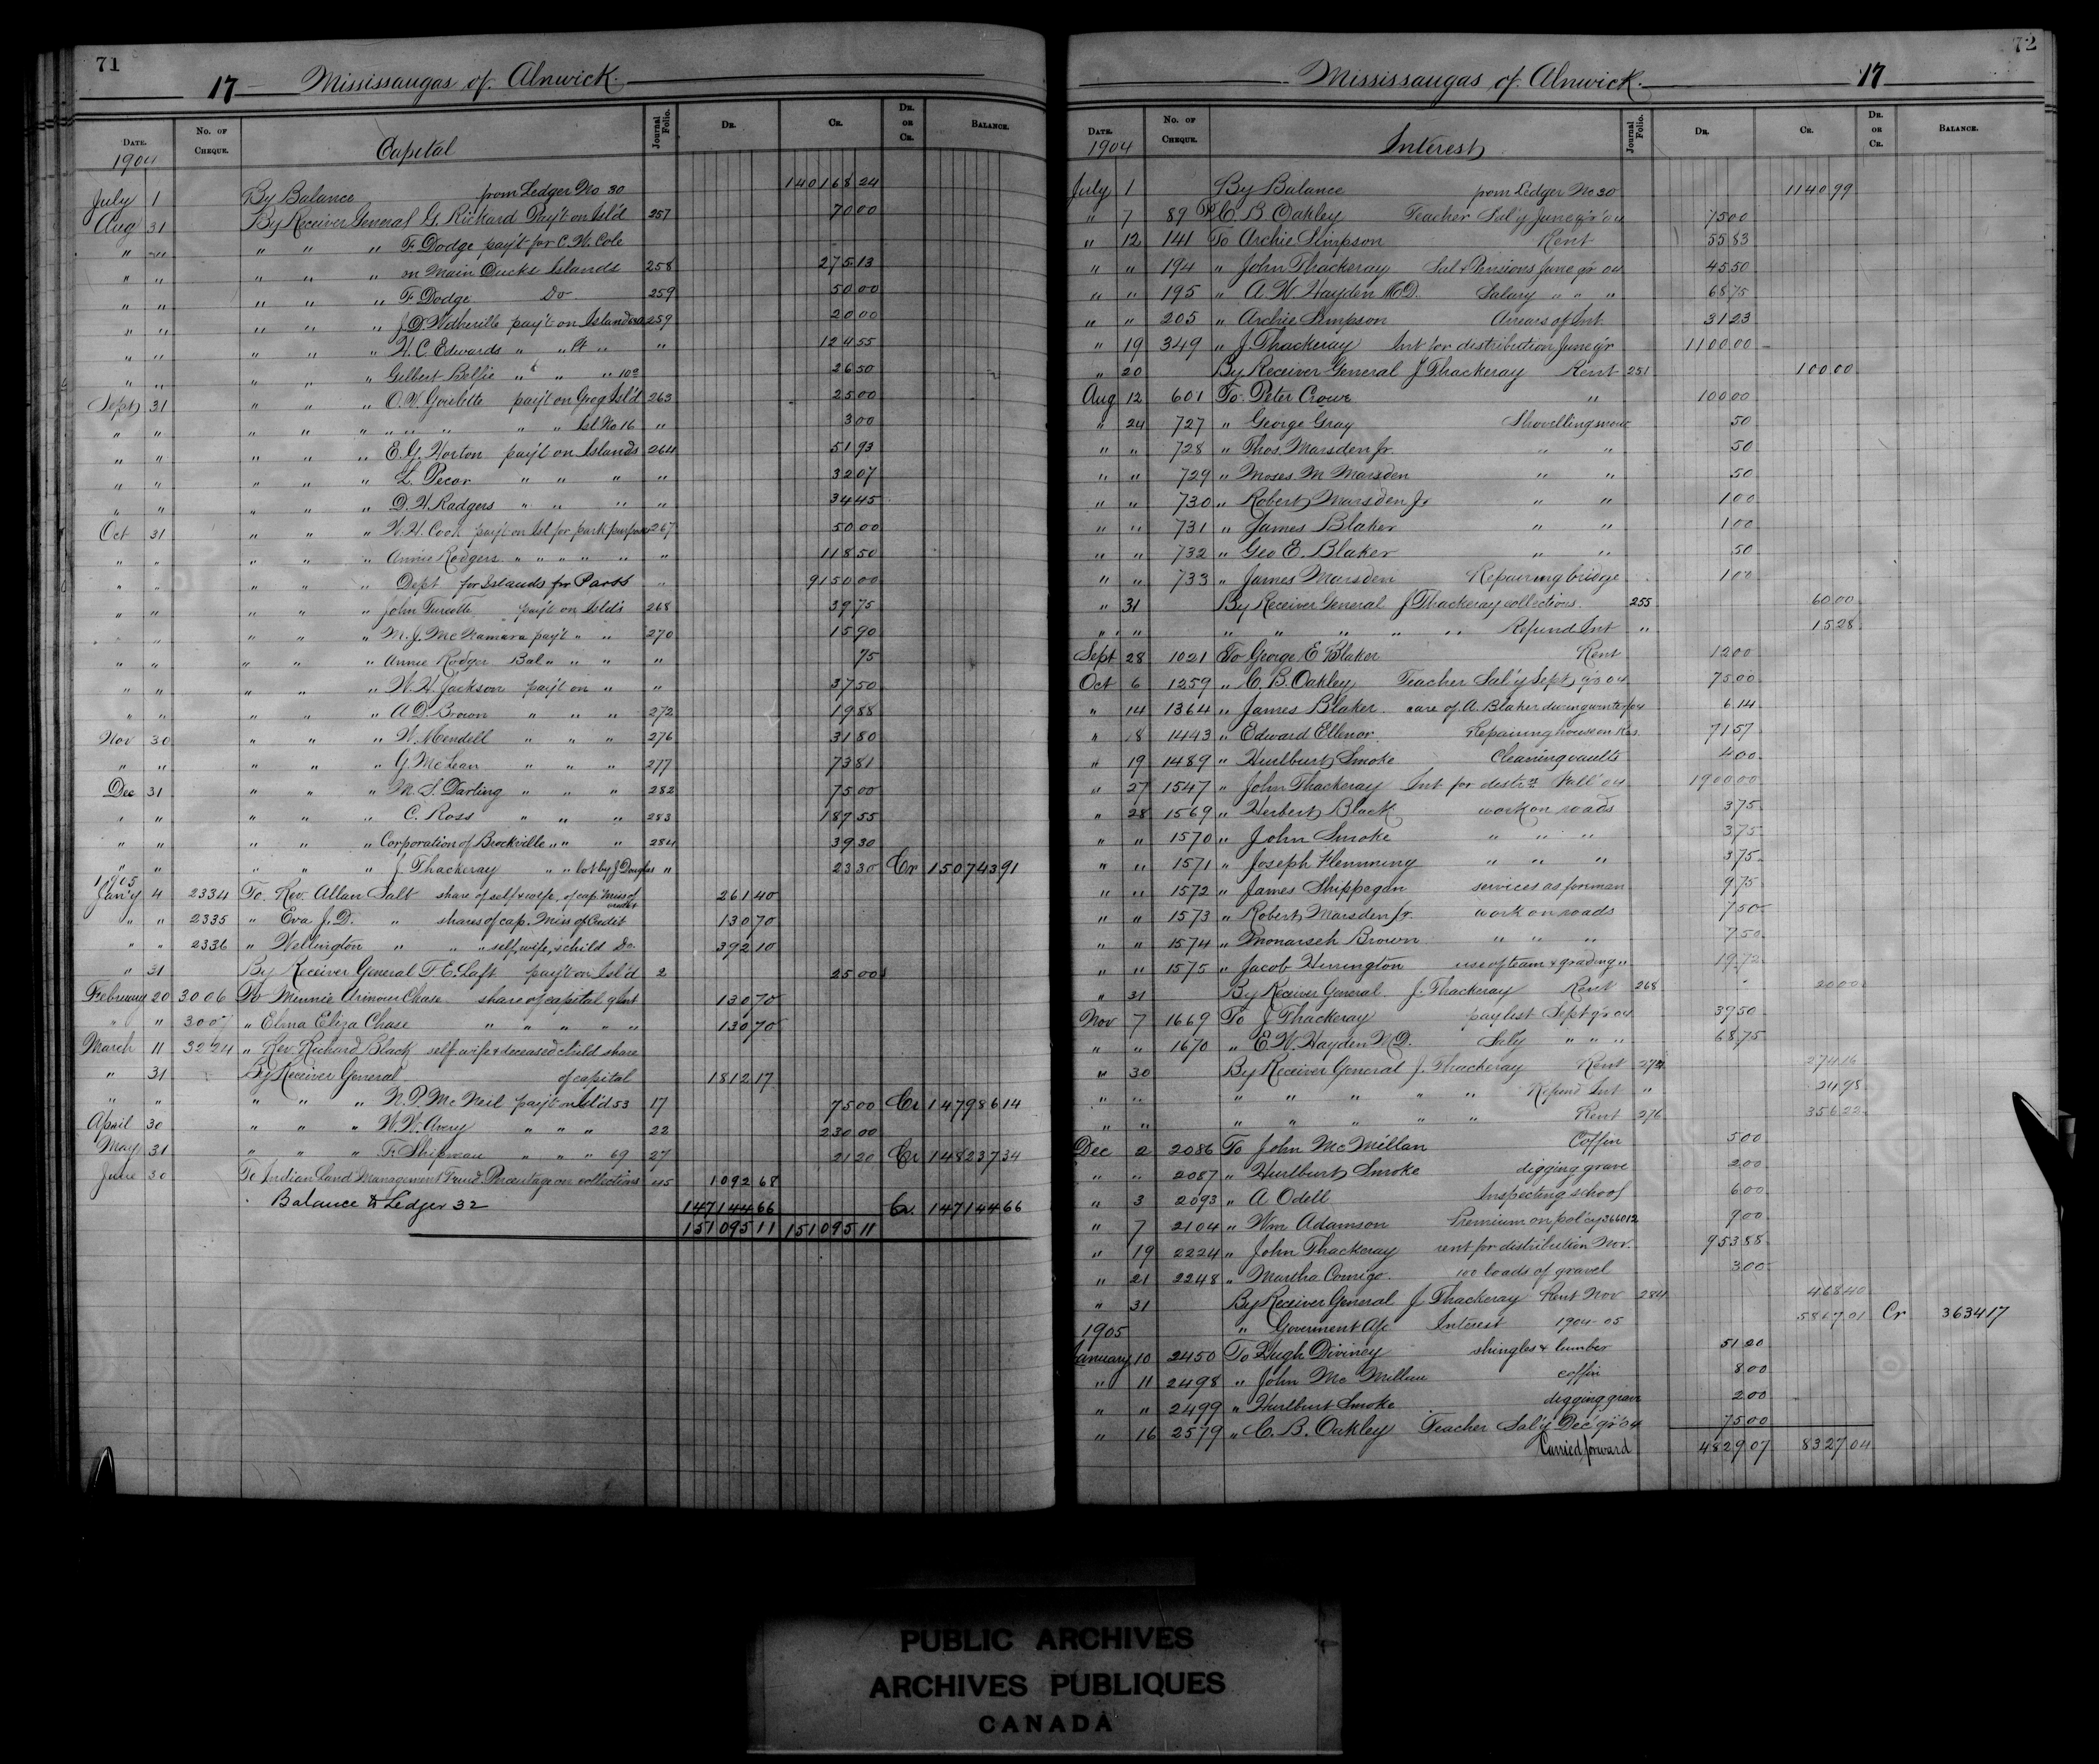 71
17 Mississaugas of Alnwick.
DATE. No. OF CHEQUE. Capital Journal Folio. DR. CR. DR. OR CR. BALANCE.
1904
July 1 By Balance from Ledger No 30 140168 24
Aug 31 By Receiver General G. Rickard Pay't on Isl'd 257 70 00
" " " " " F. Dodge pay't for C. W. Cole
" " " " " on Main Ducks Islands 258 275 13
" " " " " F Dodge Do 259 50 00
" " " " " J. D. pay't on Island 259 20 00
" " " " " H. C. Edwards " " " " 124 55
" " " " " Gilbert " " " " 26 50
Sept 31 " " " O. V. Goulette pay't on Greg Isl'd 263 25 00
" " " " " " " " " " Isl No 16 " 3 00
" " " " " E. G. Horton pay't on Islands 264 51 93
" " " " " L. Pecor " " " " 32 07
" " " " " D. H. Rodgers " " " " 34 45
Oct 31 " " " W. H. Cook pay't on Isl for park purposes 267 50 00
" " " " " Annie Rodgers " " " " " " 118 50
" " " " " Dept for Islands for Parks " 9150 00
" " " " " John Turcotte pay't on Isld's 268 39 75
" " " " " M. J. McNamara pay't " " 270 15 90
" " " " " Annie Rodger Bal " " " " 75
" " " " " W. H. Jackson pay't on " " 37 50
" " " " " A. D. Brown " " " 272 19 88
Nov 30 " " " W. Mendell " " " 276 31 80
" " " " " G. McLean " " " 277 73 81
Dec 31 " " " M. S. Darling " " " 282 75 00
" " " " " C. Ross " " " 283 187 55
" " " " " Corporation of Brockville " " " 284 39 30
" " " " " J. Thackeray " " lot by J Douglas " 23 30 Cr 150743 91
1905
Jan'y 4 2334 To Rev. Allan Salt share of self & wife, of cap Miss of Credit 261 40
" " 2335 " Eva J. D. " shares of cap. Miss of Credit 130 70
" " 2336 " Wellington " " " self, wife, & child Do 392 10
" 31 By Receiver General T. E. Taft pay't on Isl'd 2 25 00
February 20 3006 To Minnie Arinour Chase share of capital & Int 130 70
" " 3007 " Elma Eliza Chase " " " " " 130 70
March 11 3224 " Rev. Richard Black self wife & deceased child share
" 31 By Receiver General of capital 1812 17
" " " " " N. D. McNeil pay't on Isl'd 53 17 75 00 Cr 147986 14
April 30 " " " W. W. Avery " " " 22 230 00
May 31 " " " F. Shipman " " " 69 27 21 20 Cr 148237 34
June 30 To Indian Land Management Fund Percentage on collections 45 1092 68
Balance to Ledger 32 147144 66 Cr. 147144 66
151095 11 151095 11
72
Mississaugas of Alnwick. 17
DATE. No. OF CHEQUE. Interest Journal Folio. DR. CR. DR. OR CR. BALANCE.
1904
July 1 By Balance from Ledger No 30 1140.99
" 7 89 To C. B. Oakley Teacher Sal'y June q'r '04 75 00
" 12 141 To Archie Simpson Rent 55 83
" " 194 " John Thackeray Sal & Pensions June qr 04 45.50
" " 195 " A. W. Hayden M.D. Salary " " " 68 75
" " 205 " Archie Simpson Arrears of Int. 31 23
" 19 349 " J. Thackeray Int for distribution June q'r 1100 00
" 20 By Receiver General J Thackeray Rent 251 100.00
Aug 12 601 To Peter Crowe " 100 00
" 24 727 " George Gray Shovelling snow 50
" " 728 " Thos. Marsden jr. " " 50
" " 729 " Moses M Marsden " " 50
" " 730 " Robert Marsden Jr. " " 1 00
" " 731 " James Blaker " " 1 00
" " 732 " Geo E. Blaker " " 50
" " 733 " James Marsden Repairing bridge 1 00
" 31 By Receiver General J Thackeray collections. 255 60.00
" " " " " " " Refund Int " 15.28
Sept 28 1021 To George E Blaker Rent 12 00
Oct 6 1259 " C. B. Oakley Teacher Sal'y Sept q'r 04 75 00
" 14 1364 " James Blaker care of A. Blaker during winter /04 6 14
" 18 1443 " Edward Ellenor Repairing house on Res. 71 57
" 19 1489 " Hurlburt Smoke Cleaning vaults 4 00
" 27 1547 " John Thackeray Int for distrn Fall '04 1900 00
" 28 1569 " Herbert Black work on roads 3 75
" " 1570 " John Smoke " " " 3 75
" " 1571 " Joseph Flemming " " " 3 75
" " 1572 " James Shippegan services as forman 9 75
" " 1573 " Robert Marsden Jr. work on roads 7 50
" " 1574 " Monarseh Brown " " " 7 50
" " 1575 " Jacob Herrington use of team & grading " 19.72
" 31 By Receiver General J. Thackeray Rent 268 20 00
Nov 7 1669 To J Thackeray paylist Sept q'r 04 39 50
" " 1670 " E. W. Hayden M.D. Sal'y " " " 68 75
" 30 By Receiver General J. Thackeray Rent 272 274 16
" " " " " " " Refund Int " 24 98
" " " " " " " Rent 276 356 22
Dec 2 2086 To John McMillan Coffin 5 00
" " 2087 " Hurlburt Smoke digging grave 2 00
" 3 2093 " A Odell Inspecting school 6 00
" 7 2104 " Wm Adamson Premium on pol'cy 366012 9 00
" 19 2224 " John Thackeray rent for distribution Nov. 953 88
" 21 2248 " Martha Comego. 100 loads of gravel 3 00
" 31 By Receiver General J Thackeray Rent Nov 284 468 40
1905 " Goverment A/c Interest 1904-05 5867 01 Cr 3634 17
January 10 2450 To Hugh Diviney shingles & lumber 51.20
" 11 2498 " John McMillan coffin 8 00
" " 2499 " Hurlburt Smoke digging grave 2 00
" 16 2579 " C. B. Oakley Teacher Sal'y Dec q'r '04 75 00
Carried forward 4829.07 8327 04
PUBLIC ARCHIVES
ARCHIVES PUBLIQUES
CANADA